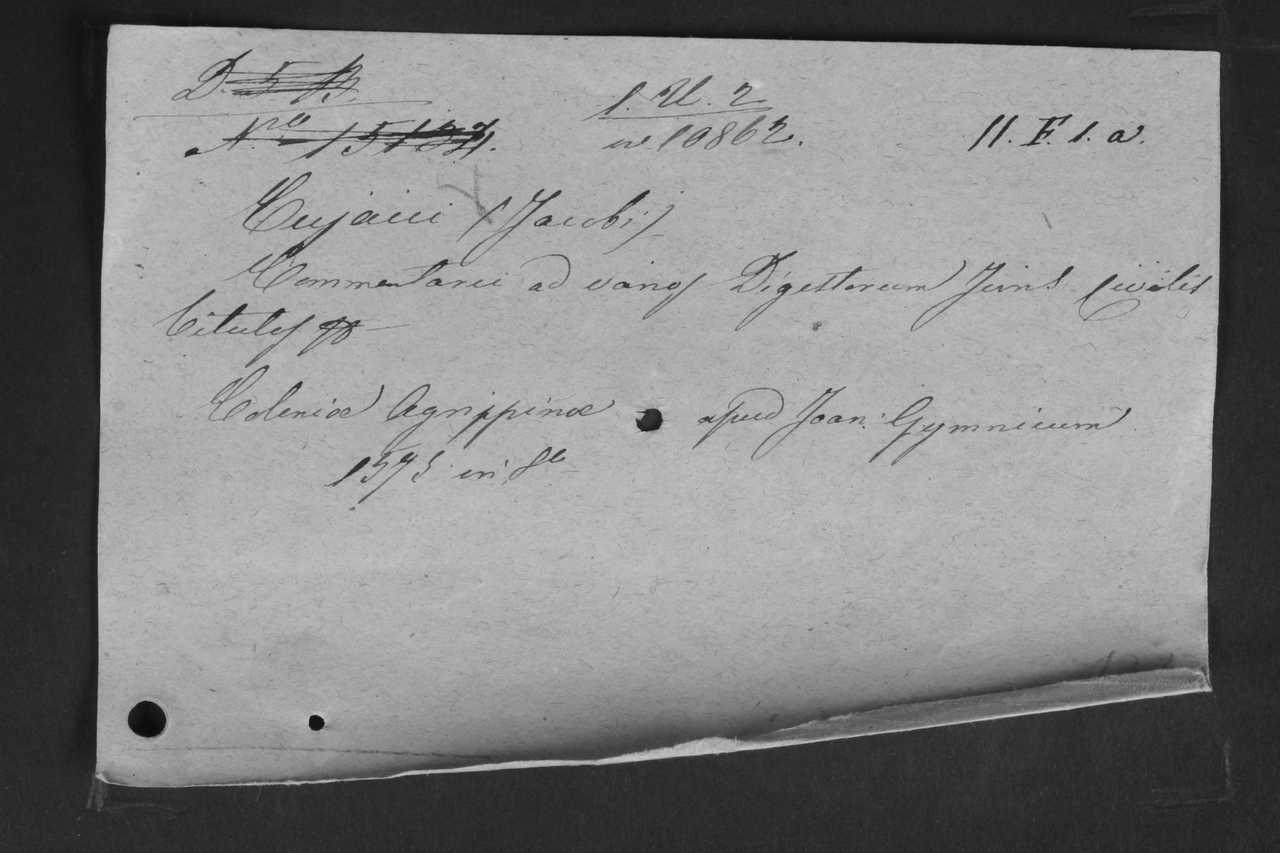 D. 5 B.
1. U. 2
Nro 15132.
in 10862.
11. F. 1. a.
Cujacii (Jacobi)
Commentarii ad varios Digestorum Juris Civilis
titulos
Coloniæ Agrippinæ apud Joan: Gymnicum
1575 in 8o